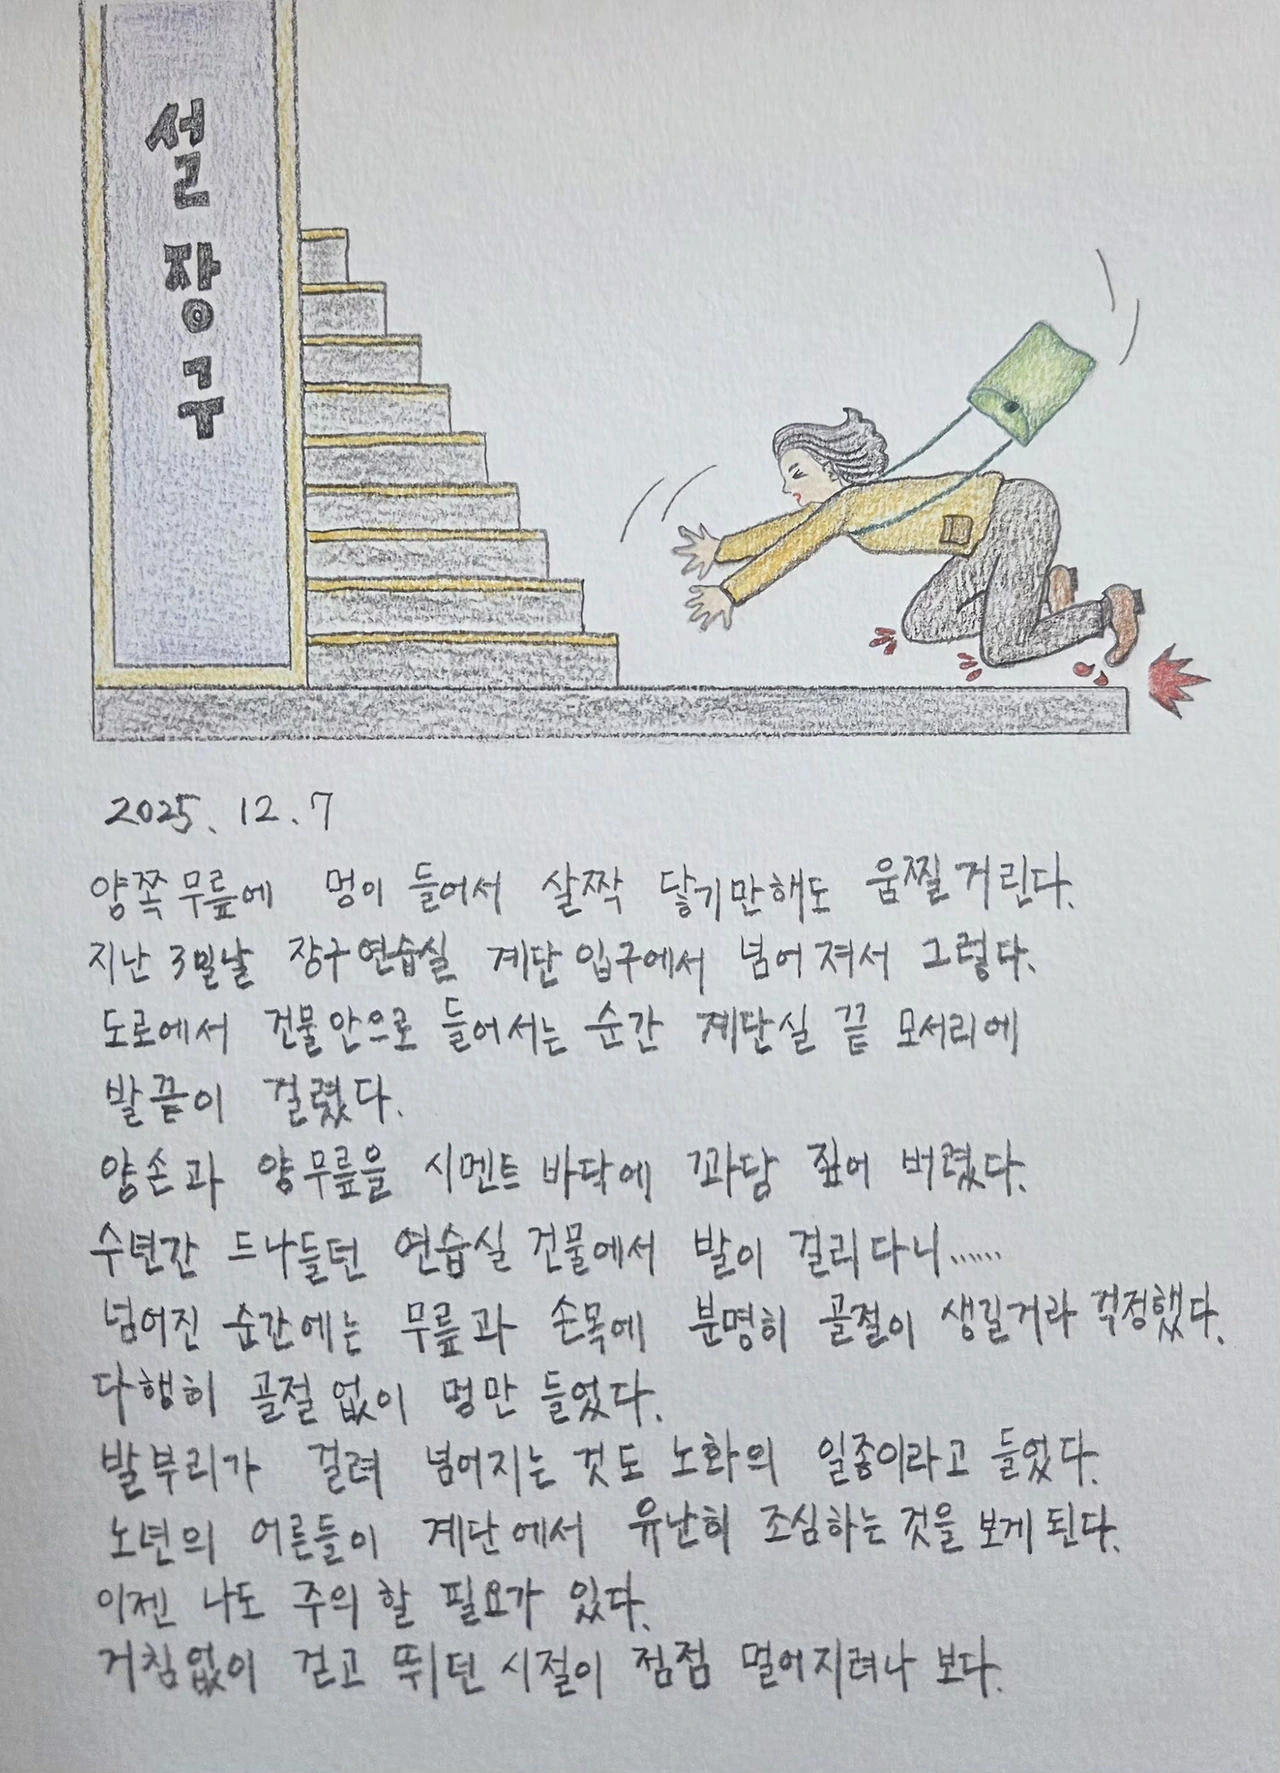 설장구
2025. 12. 7
양쪽 무릎에 멍이 들어서 살짝 닿기만해도 움찔거린다.
지난 3일날 장구연습실 계단입구에서 넘어져서 그렇다.
도로에서 건물안으로 들어서는 순간 계단실 끝 모서리에
발끝이 걸렸다.
양손과 양무릎을 시멘트 바닥에 꽈담 짚어 버렸다.
수년간 드나들던 연습실 건물에서 발이 걸리다니......
넘어진 순간에는 무릎과 손목에 분명히 골절이 생길거라 걱정했다.
다행히 골절없이 멍만 들었다.
발부리가 걸려 넘어지는 것도 노화의 일종이라고 들었다.
노년의 어른들이 계단에서 유난히 조심하는 것을 보게 된다.
이젠 나도 주의할 필요가 있다.
거침없이 걷고 뛰던 시절이 점점 멀어지려나 보다.